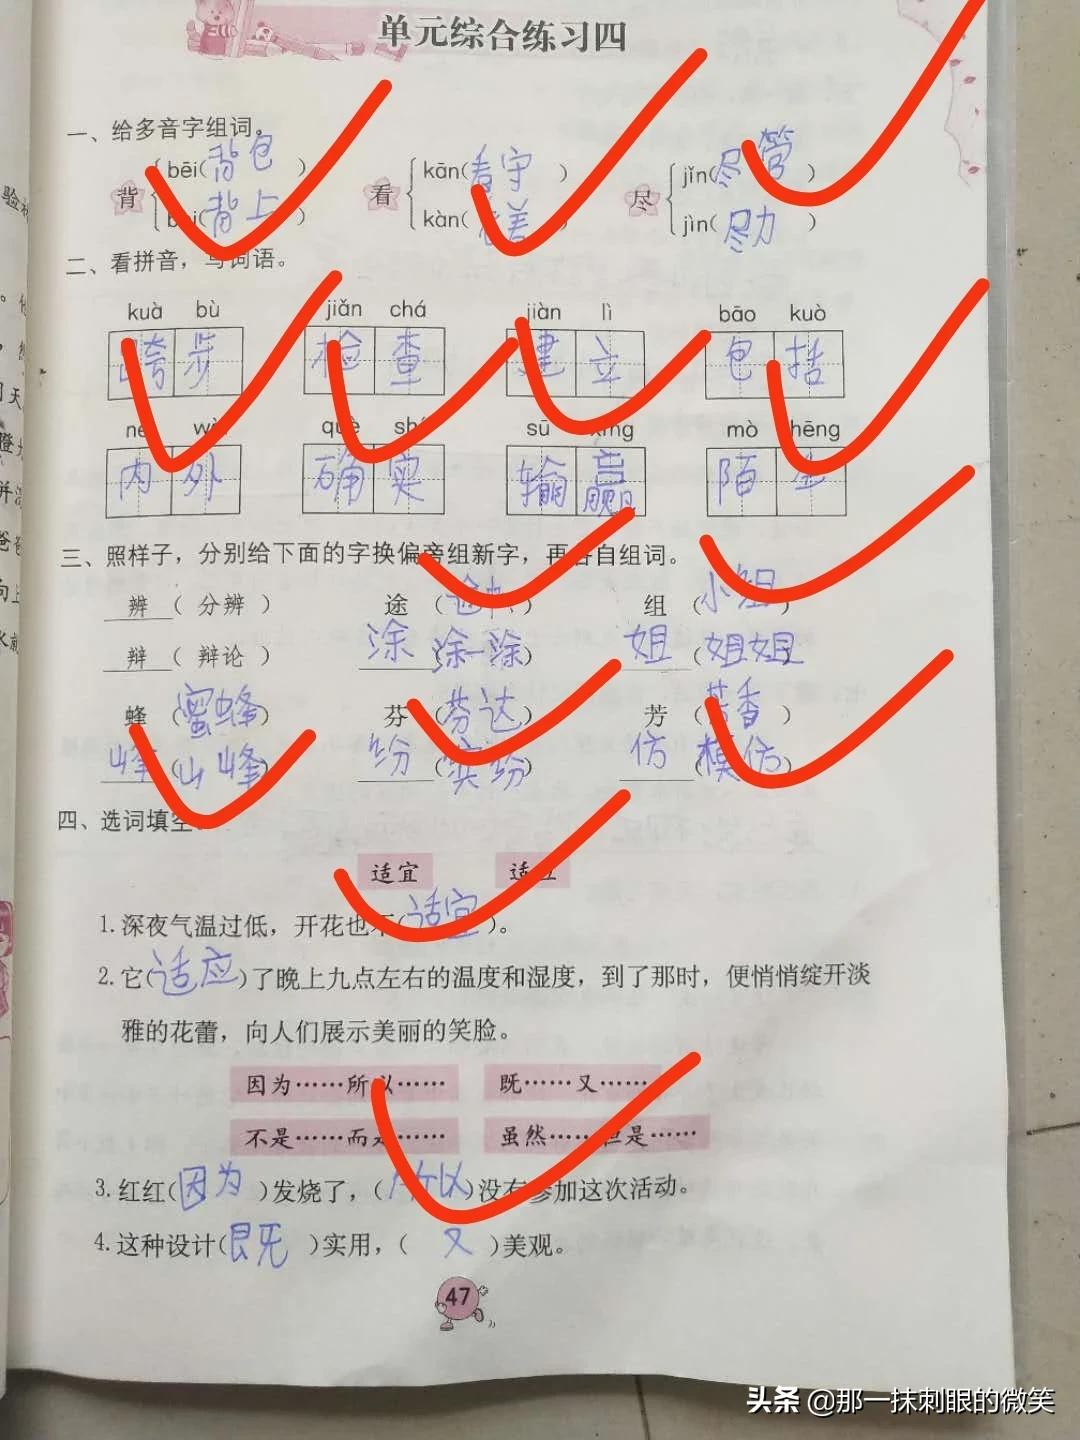 单元综合练习四
一、给多音字组词。
背 bēi(背包) 看 kān(看守) 尽 jǐn(尽管)
(背上) kàn( ) jìn(尽力)
二、看拼音，写词语。
kuà bù jiǎn chá jiàn lì bāo kuò
跨步 检查 建立 包括
sū mò
内外 确实 输赢 陌生
三、照样子，分别给下面的字换偏旁组新字，再各自组词。
辨 ( 分辨 ) 途 ( ) 组 (小组)
辩 ( 辩论 ) 涂 (涂一涂) 姐 (姐姐)
蜂 (蜜蜂) 芬 (芬达) 芳 (芳香)
峰 (山峰) 纷 ( 纷) 仿 (模仿)
四、选词填空。
适宜 适应
1. 深夜气温过低，开花也不(适宜)。
2. 它(适应)了晚上九点左右的温度和湿度，到了那时，便悄悄绽开淡
雅的花蕾，向人们展示美丽的笑脸。
因为……所以…… 既……又……
不是……而是…… 虽然……但是……
3. 红红(因为)发烧了，(所以)没有参加这次活动。
4. 这种设计(既)实用，(又)美观。
47
头条 @那一抹刺眼的微笑